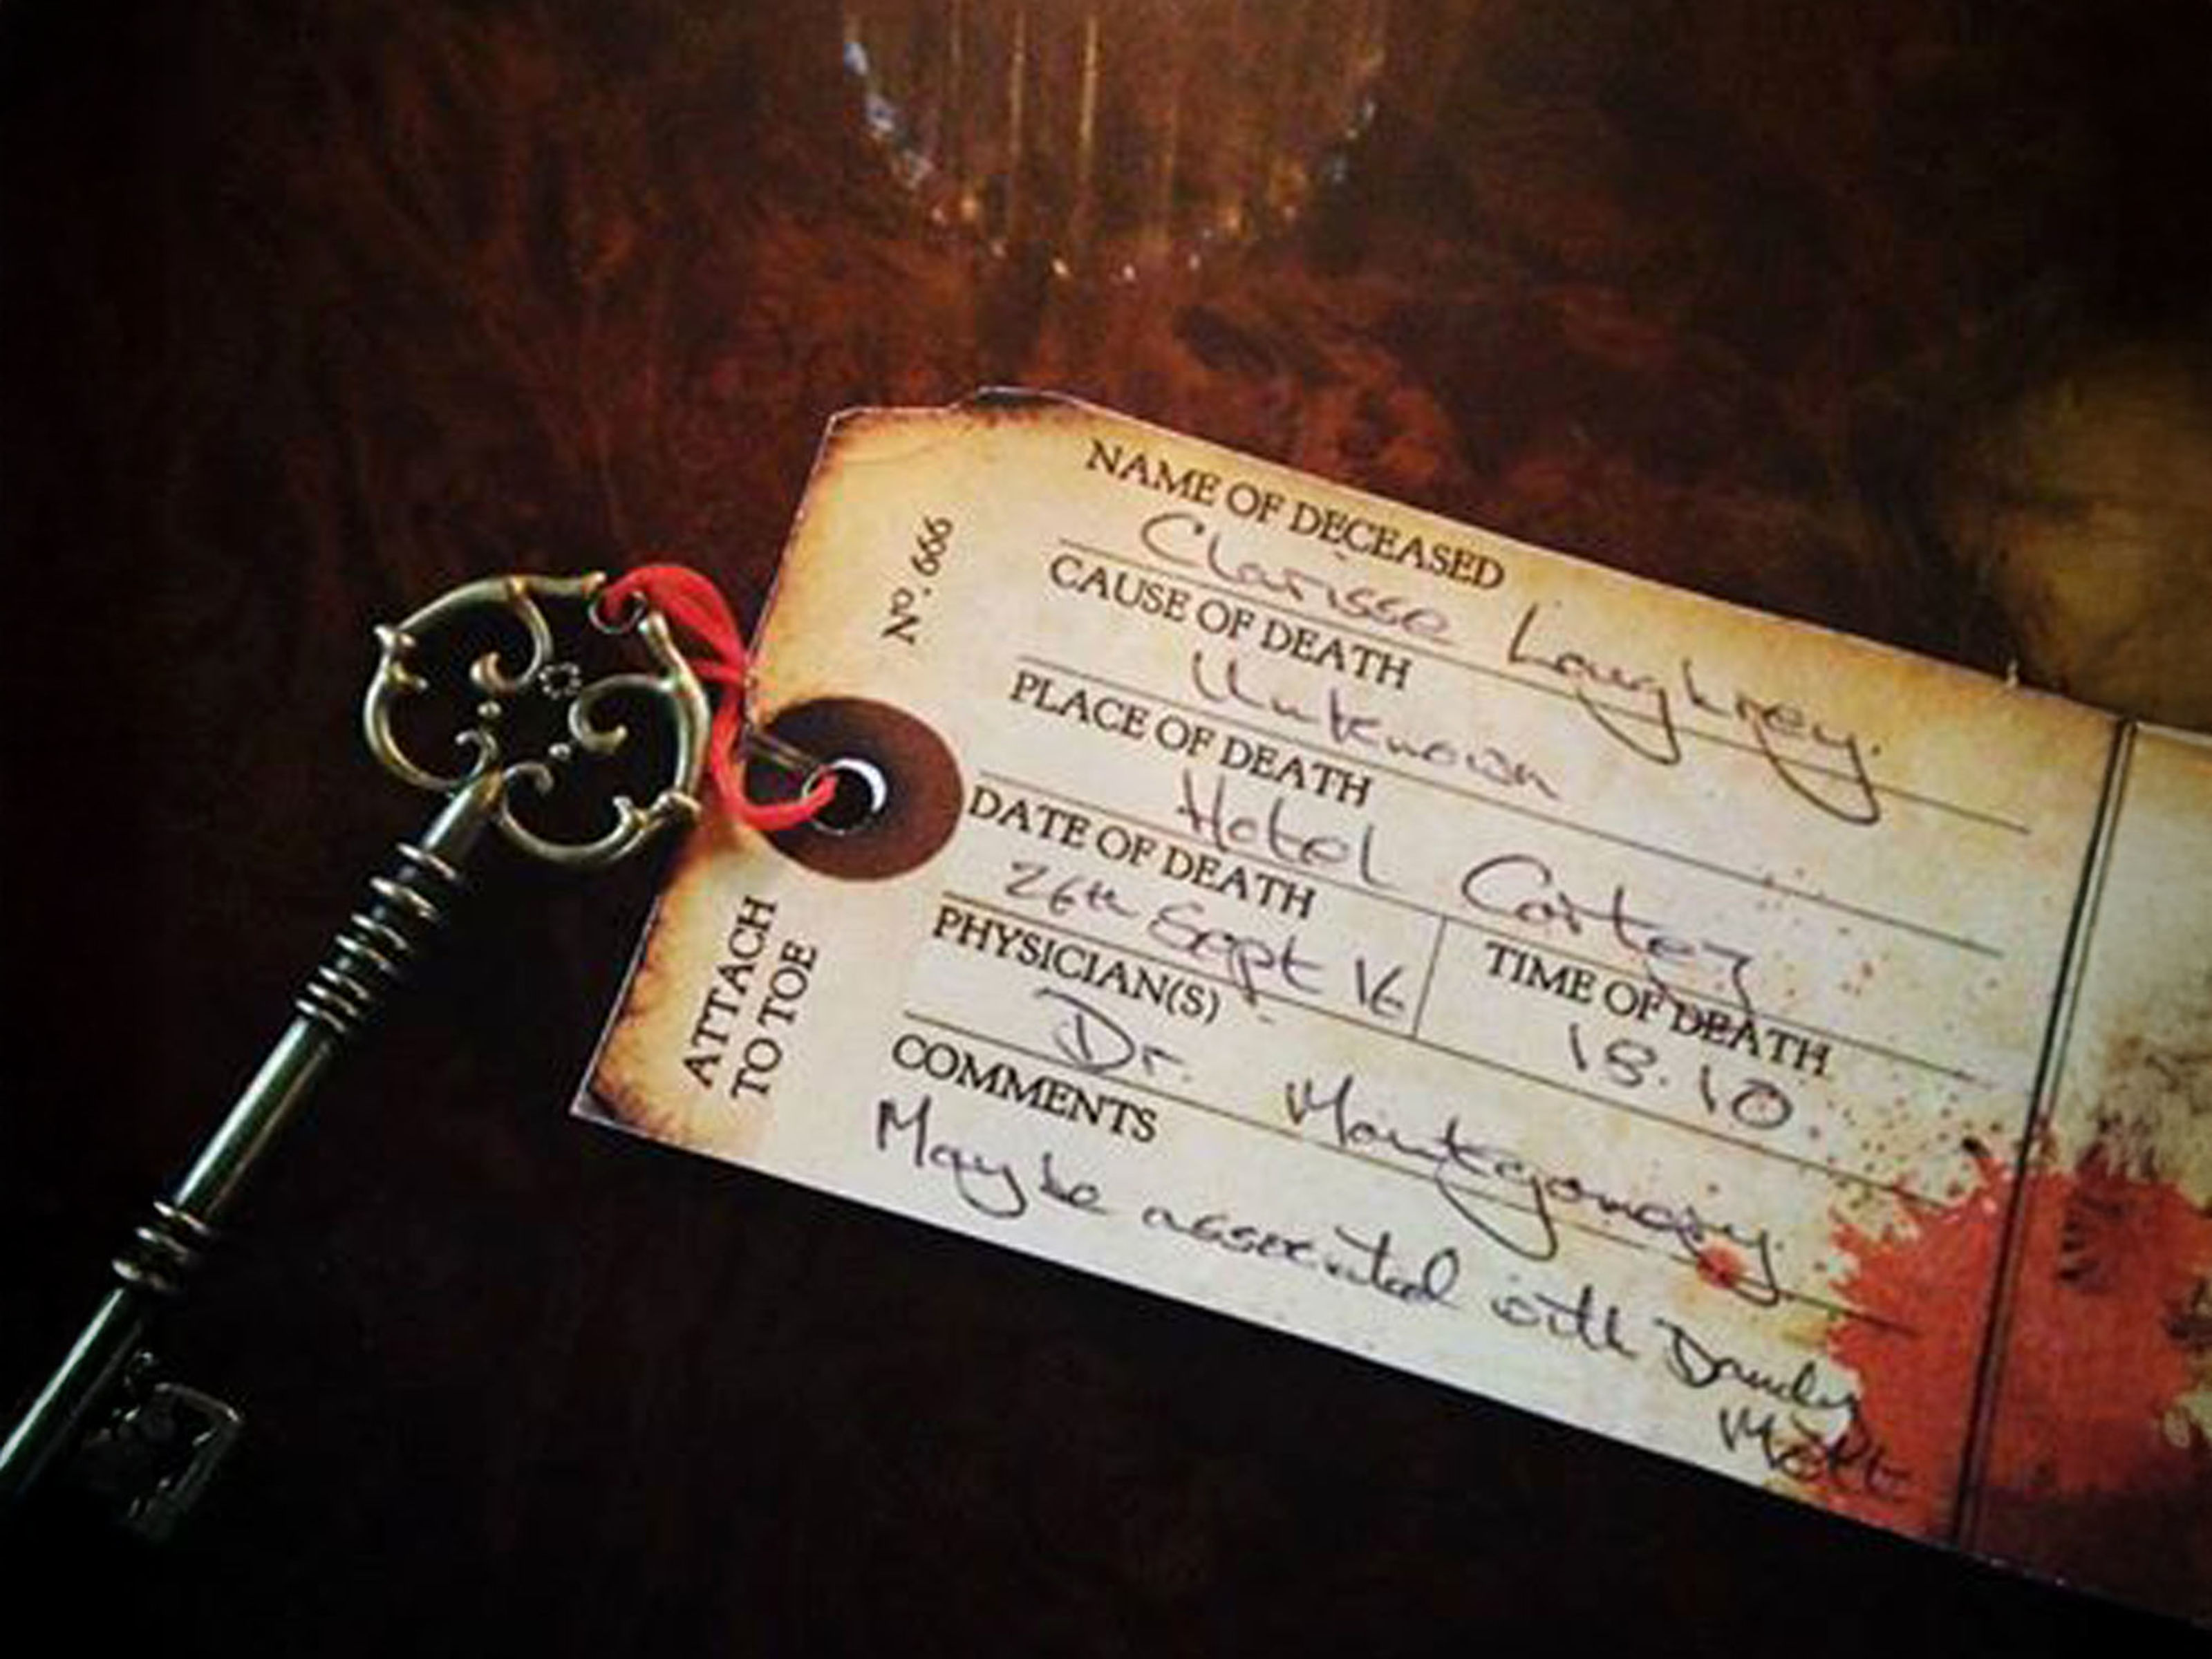 Nº. 666
ATTACH
TO TOE
NAME OF DECEASED
Clarisse Loughrey.
CAUSE OF DEATH
Unknown
PLACE OF DEATH
Hotel Cortez
DATE OF DEATH
26th Sept 16
TIME OF DEATH
18.10.
PHYSICIAN(S)
Dr. Montgomery.
COMMENTS
Maybe associated with Dandy
Mott